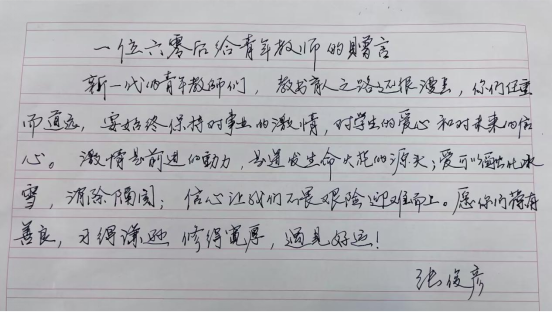 一位六零后给青年教师的赠言
新一代的青年教师们，教书育人之路还很漫长，你们任重
而道远，要始终保持对事业的激情，对学生的爱心和对未来的信
心。激情是前进的动力，是迸发生命火花的源头；爱可以融化冰
雪，消除隔阂；信心让我们不畏艰险迎难而上。愿你们拥有
善良，习得谦逊，修得宽厚，遇见好运！
张俊彦